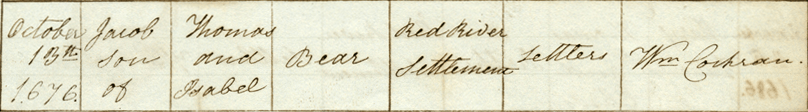 October 13th. 1676.
Jacob son of
Thomas and Isabel
Bear
Red River Settlement
Settlers
Wm Cochran.